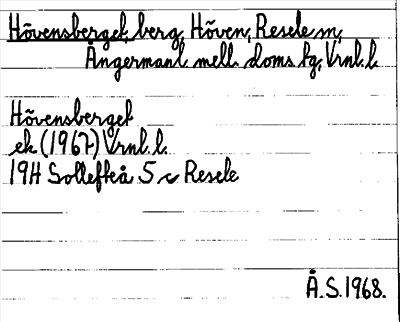 Hövensberget, berg, Höven, Resele sn,
Ångermanl. mell. doms. tg, Vrnl. l.
Hövensberget
ek (1967) Vrnl. l.
19H Sollefteå 5 c Resele
Å.S.1968.